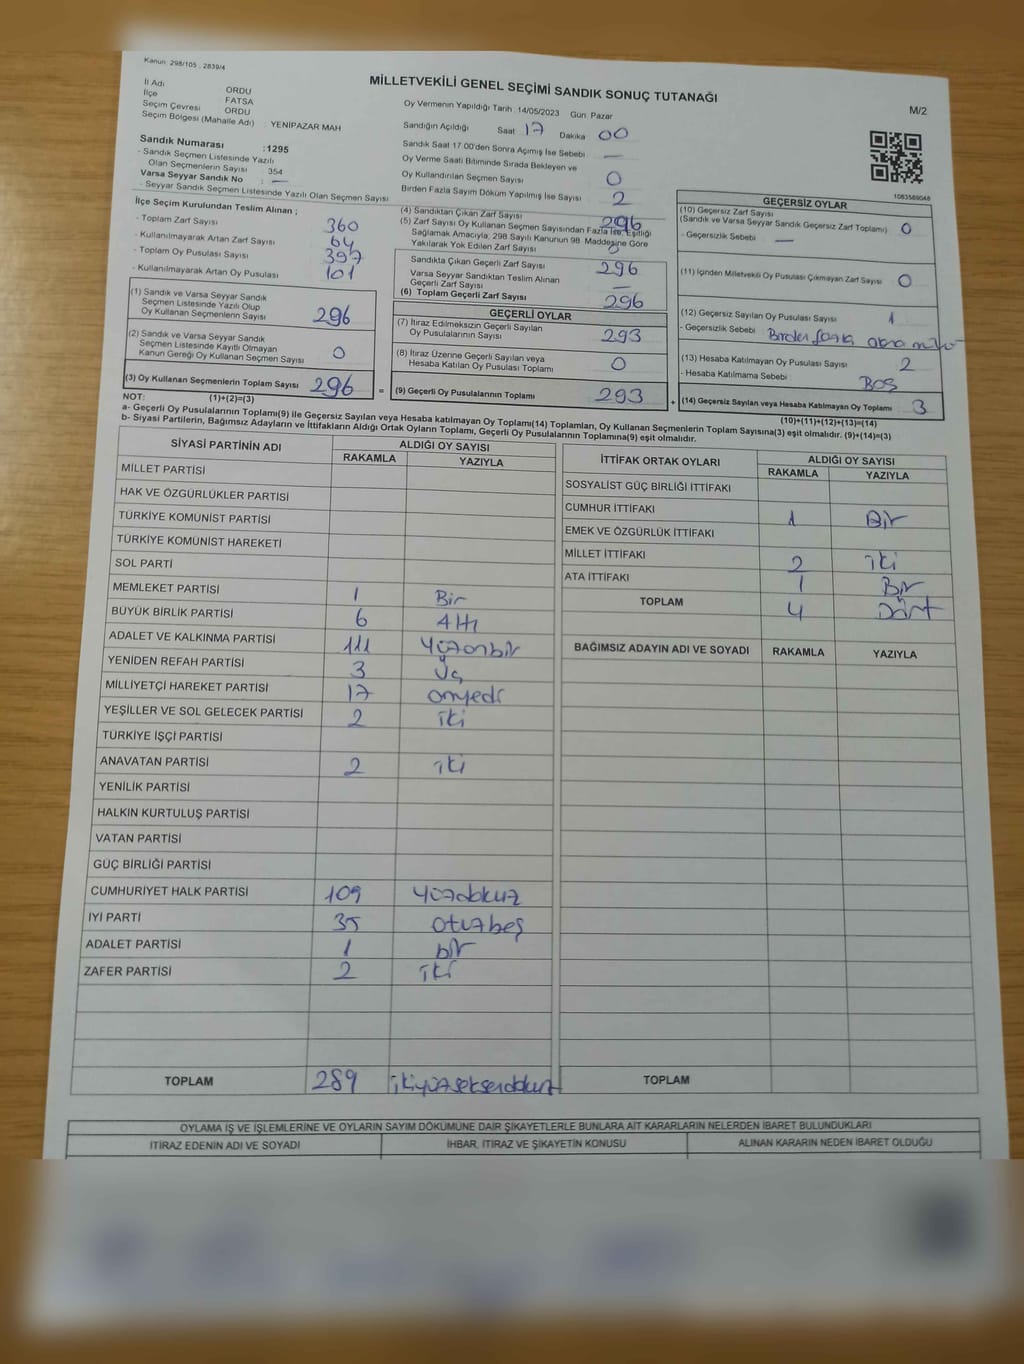 Kanun: 298/105 , 2839/4
MİLLETVEKİLİ GENEL SEÇİMİ SANDIK SONUÇ TUTANAĞI
M/2
İl Adı ORDU
İlçe FATSA
Seçim Çevresi ORDU
Seçim Bölgesi (Mahalle Adı) : YENİPAZAR MAH
Sandık Numarası :1295
- Sandık Seçmen Listesinde Yazılı
Olan Seçmenlerin Sayısı : 354
Varsa Seyyar Sandık No : —
- Seyyar Sandık Seçmen Listesinde Yazılı Olan Seçmen Sayısı
Oy Vermenin Yapıldığı Tarih :14/05/2023 Gün: Pazar
Sandığın Açıldığı Saat 17 Dakika 00
Sandık Saat 17.00'den Sonra Açımış İse Sebebi —
Oy Verme Saati Bitiminde Sırada Bekleyen ve
Oy Kullandırılan Seçmen Sayısı 0
Birden Fazla Sayım Döküm Yapılmış İse Sayısı 2
1083589048
İlçe Seçim Kurulundan Teslim Alınan ;
- Toplam Zarf Sayısı 360
- Kullanılmayarak Artan Zarf Sayısı 64
- Toplam Oy Pusulası Sayısı 397
- Kullanılmayarak Artan Oy Pusulası 101
(1) Sandık ve Varsa Seyyar Sandık
Seçmen Listesinde Yazılı Olup
Oy Kullanan Seçmenlerin Sayısı 296
(2) Sandık ve Varsa Seyyar Sandık
Seçmen Listesinde Kayıtlı Olmayan
Kanun Gereği Oy Kullanan Seçmen Sayısı 0
(3) Oy Kullanan Seçmenlerin Toplam Sayısı 296 =
(4) Sandıktan Çıkan Zarf Sayısı 296
(5) Zarf Sayısı Oy Kullanan Seçmen Sayısından Fazla İse, Eşitliği
Sağlamak Amacıyla, 298 Sayılı Kanunun 98. Maddesine Göre
Yakılarak Yok Edilen Zarf Sayısı 0
Sandıkta Çıkan Geçerli Zarf Sayısı 296
Varsa Seyyar Sandıktan Teslim Alınan
Geçerli Zarf Sayısı —
(6) Toplam Geçerli Zarf Sayısı 296
GEÇERLİ OYLAR
(7) İtiraz Edilmeksizin Geçerli Sayılan
Oy Pusulalarının Sayısı 293
(8) İtiraz Üzerine Geçerli Sayılan veya
Hesaba Katılan Oy Pusulası Toplamı 0
(9) Geçerli Oy Pusulalarının Toplamı 293 +
GEÇERSİZ OYLAR
(10) Geçersiz Zarf Sayısı
(Sandık ve Varsa Seyyar Sandık Geçersiz Zarf Toplamı) 0
- Geçersizlik Sebebi —
(11) İçinden Milletvekili Oy Pusulası Çıkmayan Zarf Sayısı 0
(12) Geçersiz Sayılan Oy Pusulası Sayısı 1
- Geçersizlik Sebebi Birden fazla
(13) Hesaba Katılmayan Oy Pusulası Sayısı 2
- Hesaba Katılmama Sebebi BOŞ
(14) Geçersiz Sayılan veya Hesaba Katılmayan Oy Toplamı 3
NOT: (1)+(2)=(3)
(10)+(11)+(12)+(13)=(14)
a- Geçerli Oy Pusulalarının Toplamı(9) ile Geçersiz Sayılan veya Hesaba katılmayan Oy Toplamı(14) Toplamları, Oy Kullanan Seçmenlerin Toplam Sayısına(3) eşit olmalıdır. (9)+(14)=(3)
b- Siyasi Partilerin, Bağımsız Adayların ve İttifakların Aldığı Ortak Oyların Toplamı, Geçerli Oy Pusulalarının Toplamına(9) eşit olmalıdır.
SİYASİ PARTİNİN ADI ALDIĞI OY SAYISI
RAKAMLA YAZIYLA
MİLLET PARTİSİ
HAK VE ÖZGÜRLÜKLER PARTİSİ
TÜRKİYE KOMÜNİST PARTİSİ
TÜRKİYE KOMÜNİST HAREKETİ
SOL PARTİ
MEMLEKET PARTİSİ 1 Bir
BÜYÜK BİRLİK PARTİSİ 6 Altı
ADALET VE KALKINMA PARTİSİ 111 Yüzonbir
YENİDEN REFAH PARTİSİ 3 Üç
MİLLİYETÇİ HAREKET PARTİSİ 17 onyedi
YEŞİLLER VE SOL GELECEK PARTİSİ 2 iki
TÜRKİYE İŞÇİ PARTİSİ
ANAVATAN PARTİSİ 2 iki
YENİLİK PARTİSİ
HALKIN KURTULUŞ PARTİSİ
VATAN PARTİSİ
GÜÇ BİRLİĞİ PARTİSİ
CUMHURİYET HALK PARTİSİ 109 Yüzdokuz
İYİ PARTİ 35 otuzbeş
ADALET PARTİSİ 1 bir
ZAFER PARTİSİ 2 iki
TOPLAM 289 ikiyüzseksendokuz
İTTİFAK ORTAK OYLARI ALDIĞI OY SAYISI
RAKAMLA YAZIYLA
SOSYALİST GÜÇ BİRLİĞİ İTTİFAKI
CUMHUR İTTİFAKI 1 Bir
EMEK VE ÖZGÜRLÜK İTTİFAKI
MİLLET İTTİFAKI 2 iki
ATA İTTİFAKI 1 Bir
TOPLAM 4 Dört
BAĞIMSIZ ADAYIN ADI VE SOYADI RAKAMLA YAZIYLA
TOPLAM
OYLAMA İŞ VE İŞLEMLERİNE VE OYLARIN SAYIM DÖKÜMÜNE DAİR ŞİKAYETLERLE BUNLARA AİT KARARLARIN NELERDEN İBARET BULUNDUKLARI
İTİRAZ EDENİN ADI VE SOYADI İHBAR, İTİRAZ VE ŞİKAYETİN KONUSU ALINAN KARARIN NEDEN İBARET OLDUĞU